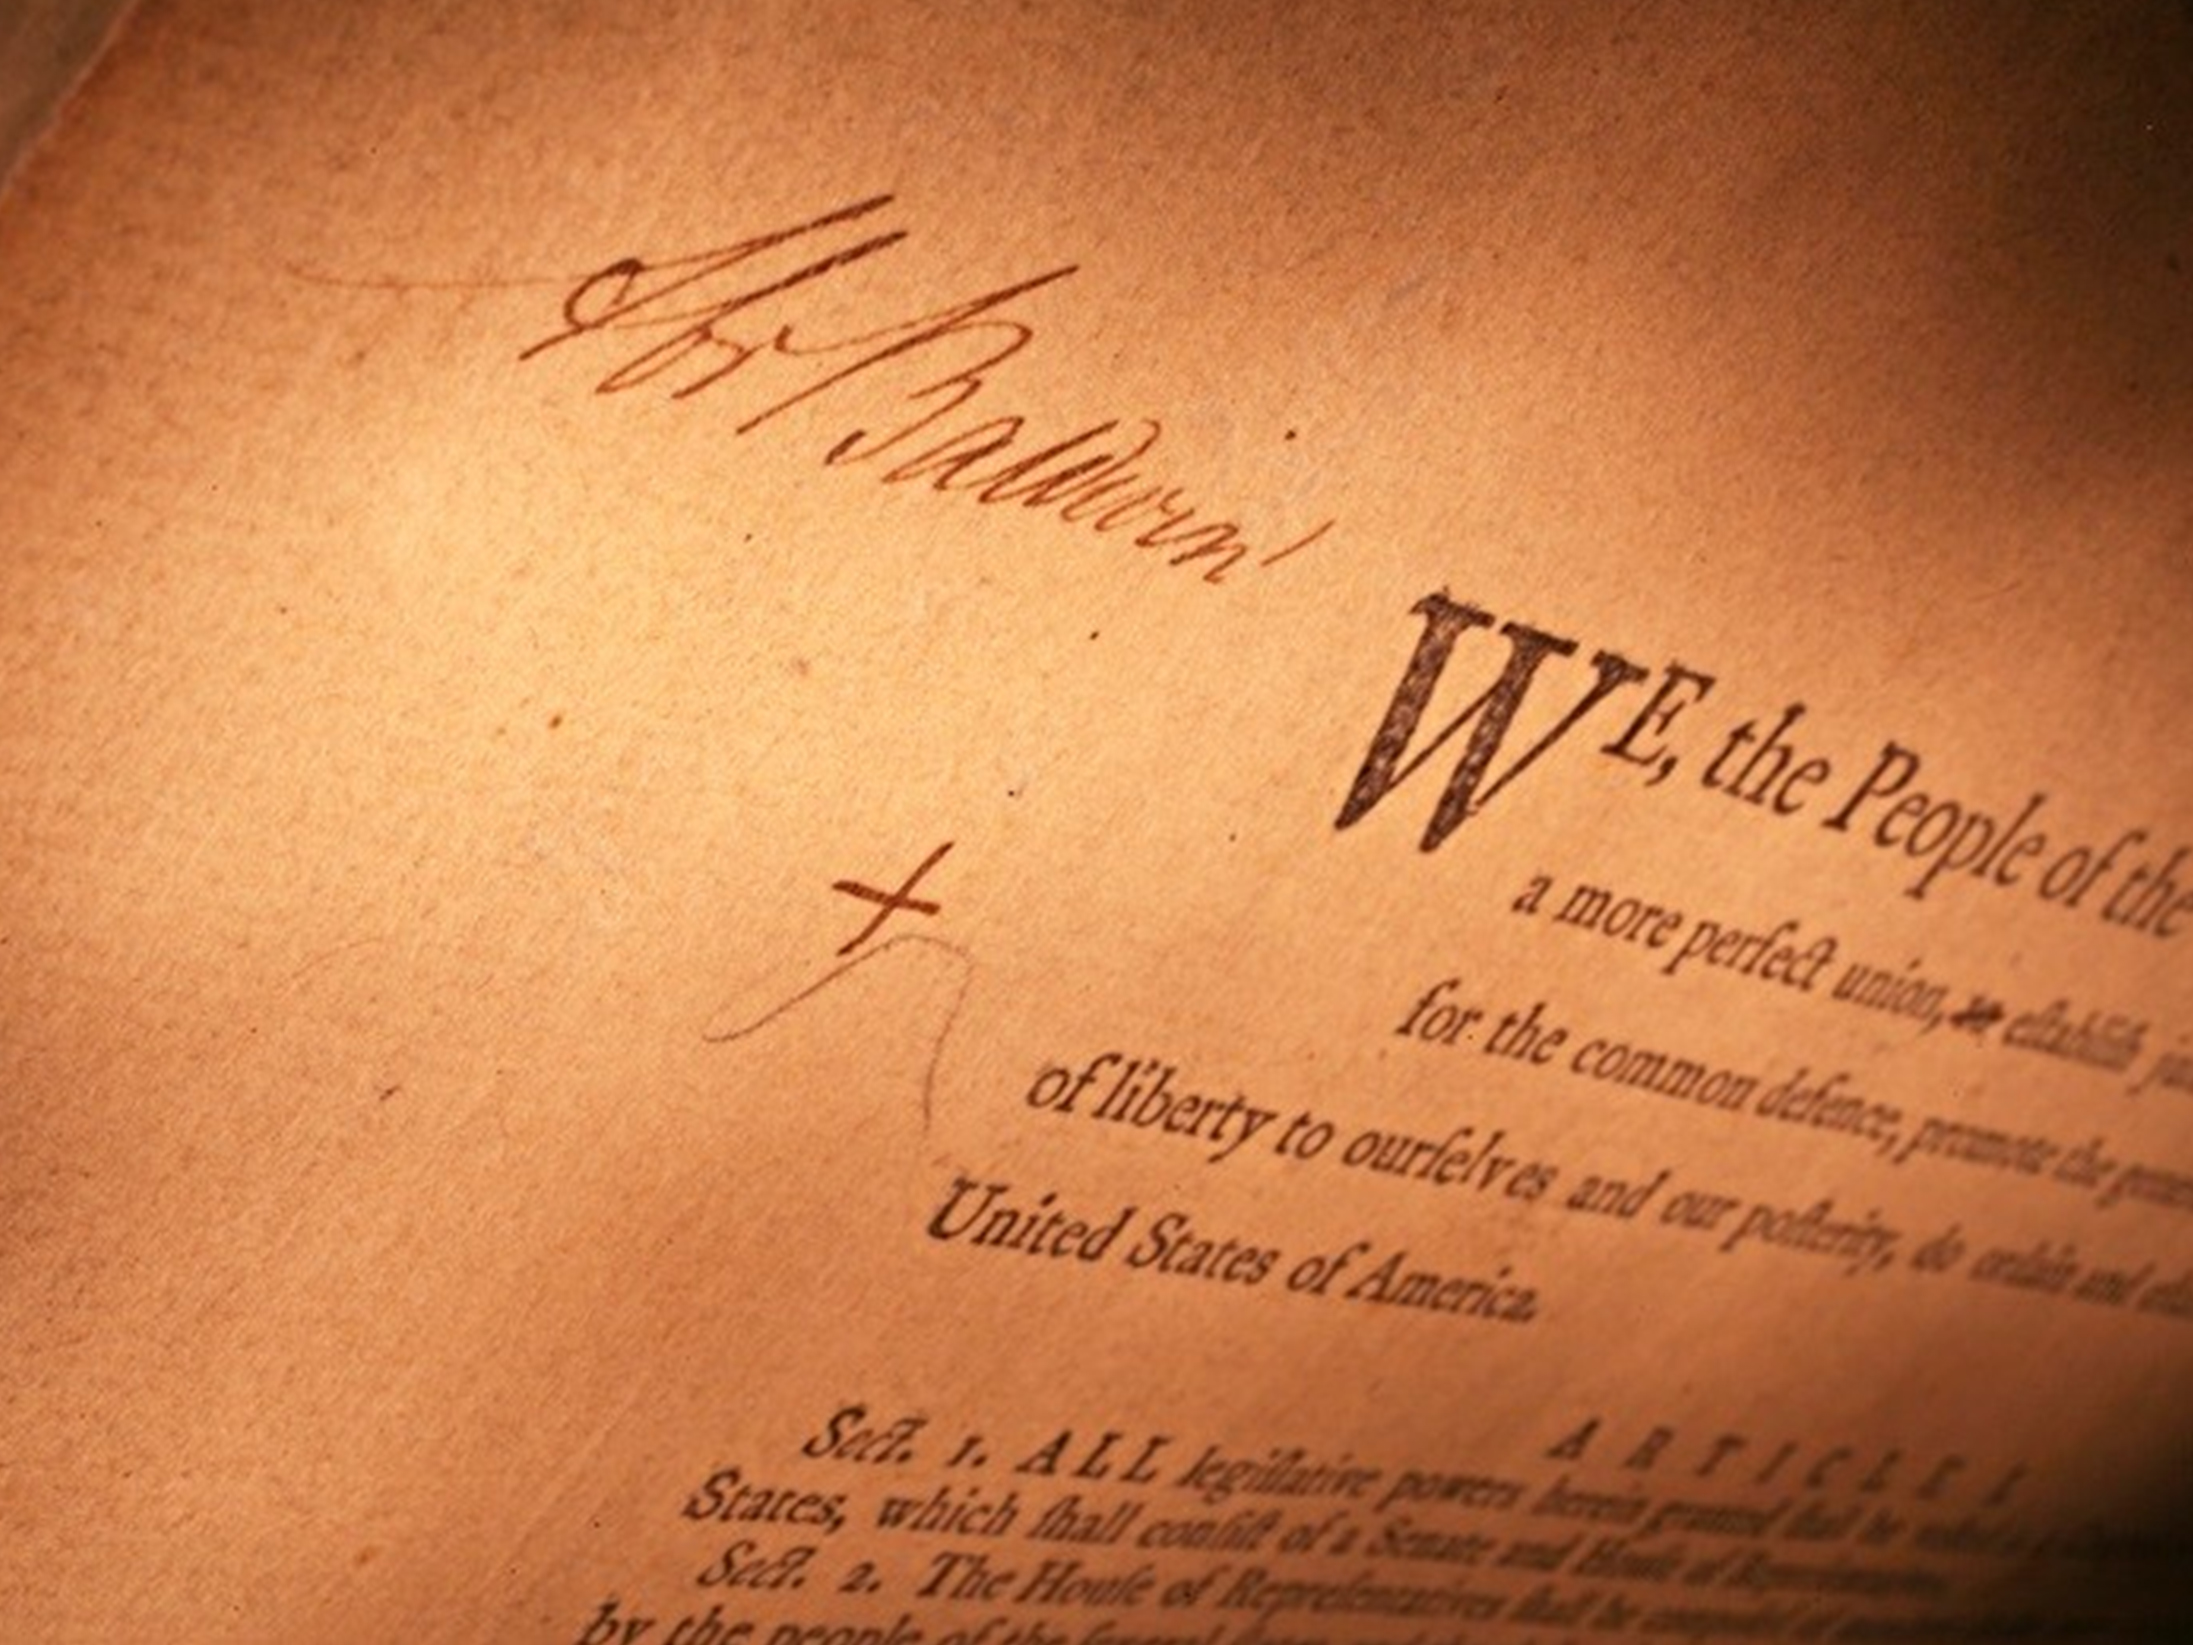 Abr Baldwin
WE, the People of the
a more perfect union, to establish
for the common defence, promote the
of liberty to ourselves and our posterity, do ordain and
United States of America.
ARTICLE I
Sect. 1. ALL legislative powers herein granted shall be
States, which shall consist of a Senate and House of Representatives.
Sect. 2. The House of Representatives shall be
by the people of the several